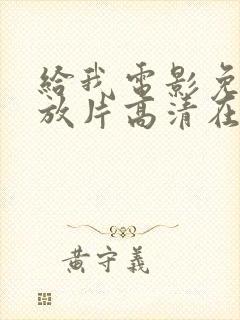 给我电影免
放片高清在
黄守義